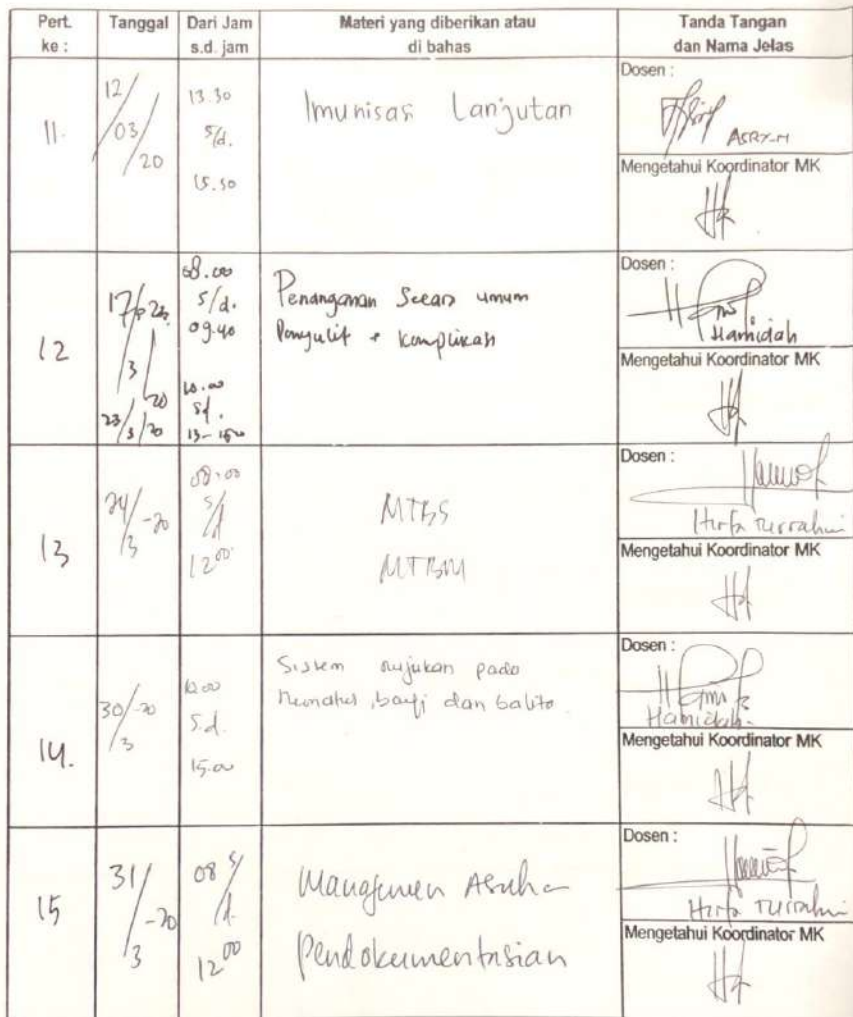 Pert. ke :
Tanggal
Dari Jam s.d. jam
Materi yang diberikan atau di bahas
Tanda Tangan dan Nama Jelas
11.
12/03/20
13.30
s/d.
15.50
Imunisasi Lanjutan
Dosen :
Mengetahui Koordinator MK
12
17/3/20
23/3/20
08.00
s/d.
09.40
10.00
sd.
Penanganan Secara umum
Penyulit + Komplikasi
Dosen :
Hamidah
Mengetahui Koordinator MK
13
24/3-20
08.00
s/d
12.00
MTBS
MTBM
Dosen :
Mengetahui Koordinator MK
14.
30/3-20
10.00
s.d.
15.00
Sistem rujukan pada
neonatus, bayi dan balita
Dosen :
Hamidah
Mengetahui Koordinator MK
15
31/3-20
08 s/d.
12.00
Manajemen Asuhan
Pendokumentasian
Dosen :
Mengetahui Koordinator MK